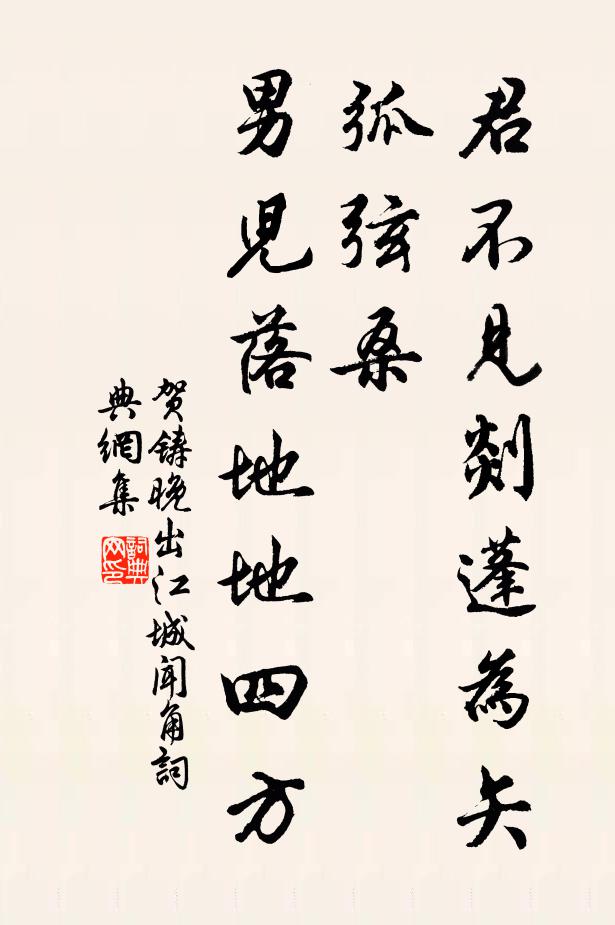 君不見剡蓬為矢
弧弦桑
男児落地地四方
賀鑄晚出江城聞角詞
典網集
詞典
网印